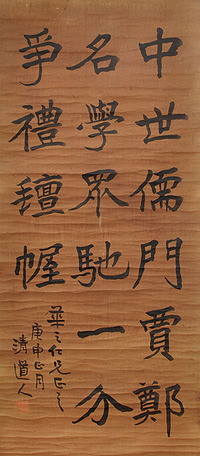 中世儒門賈鄭
名學眾馳一介
爭禮氊幄
華之仁兄正之
庚申正月
清道人